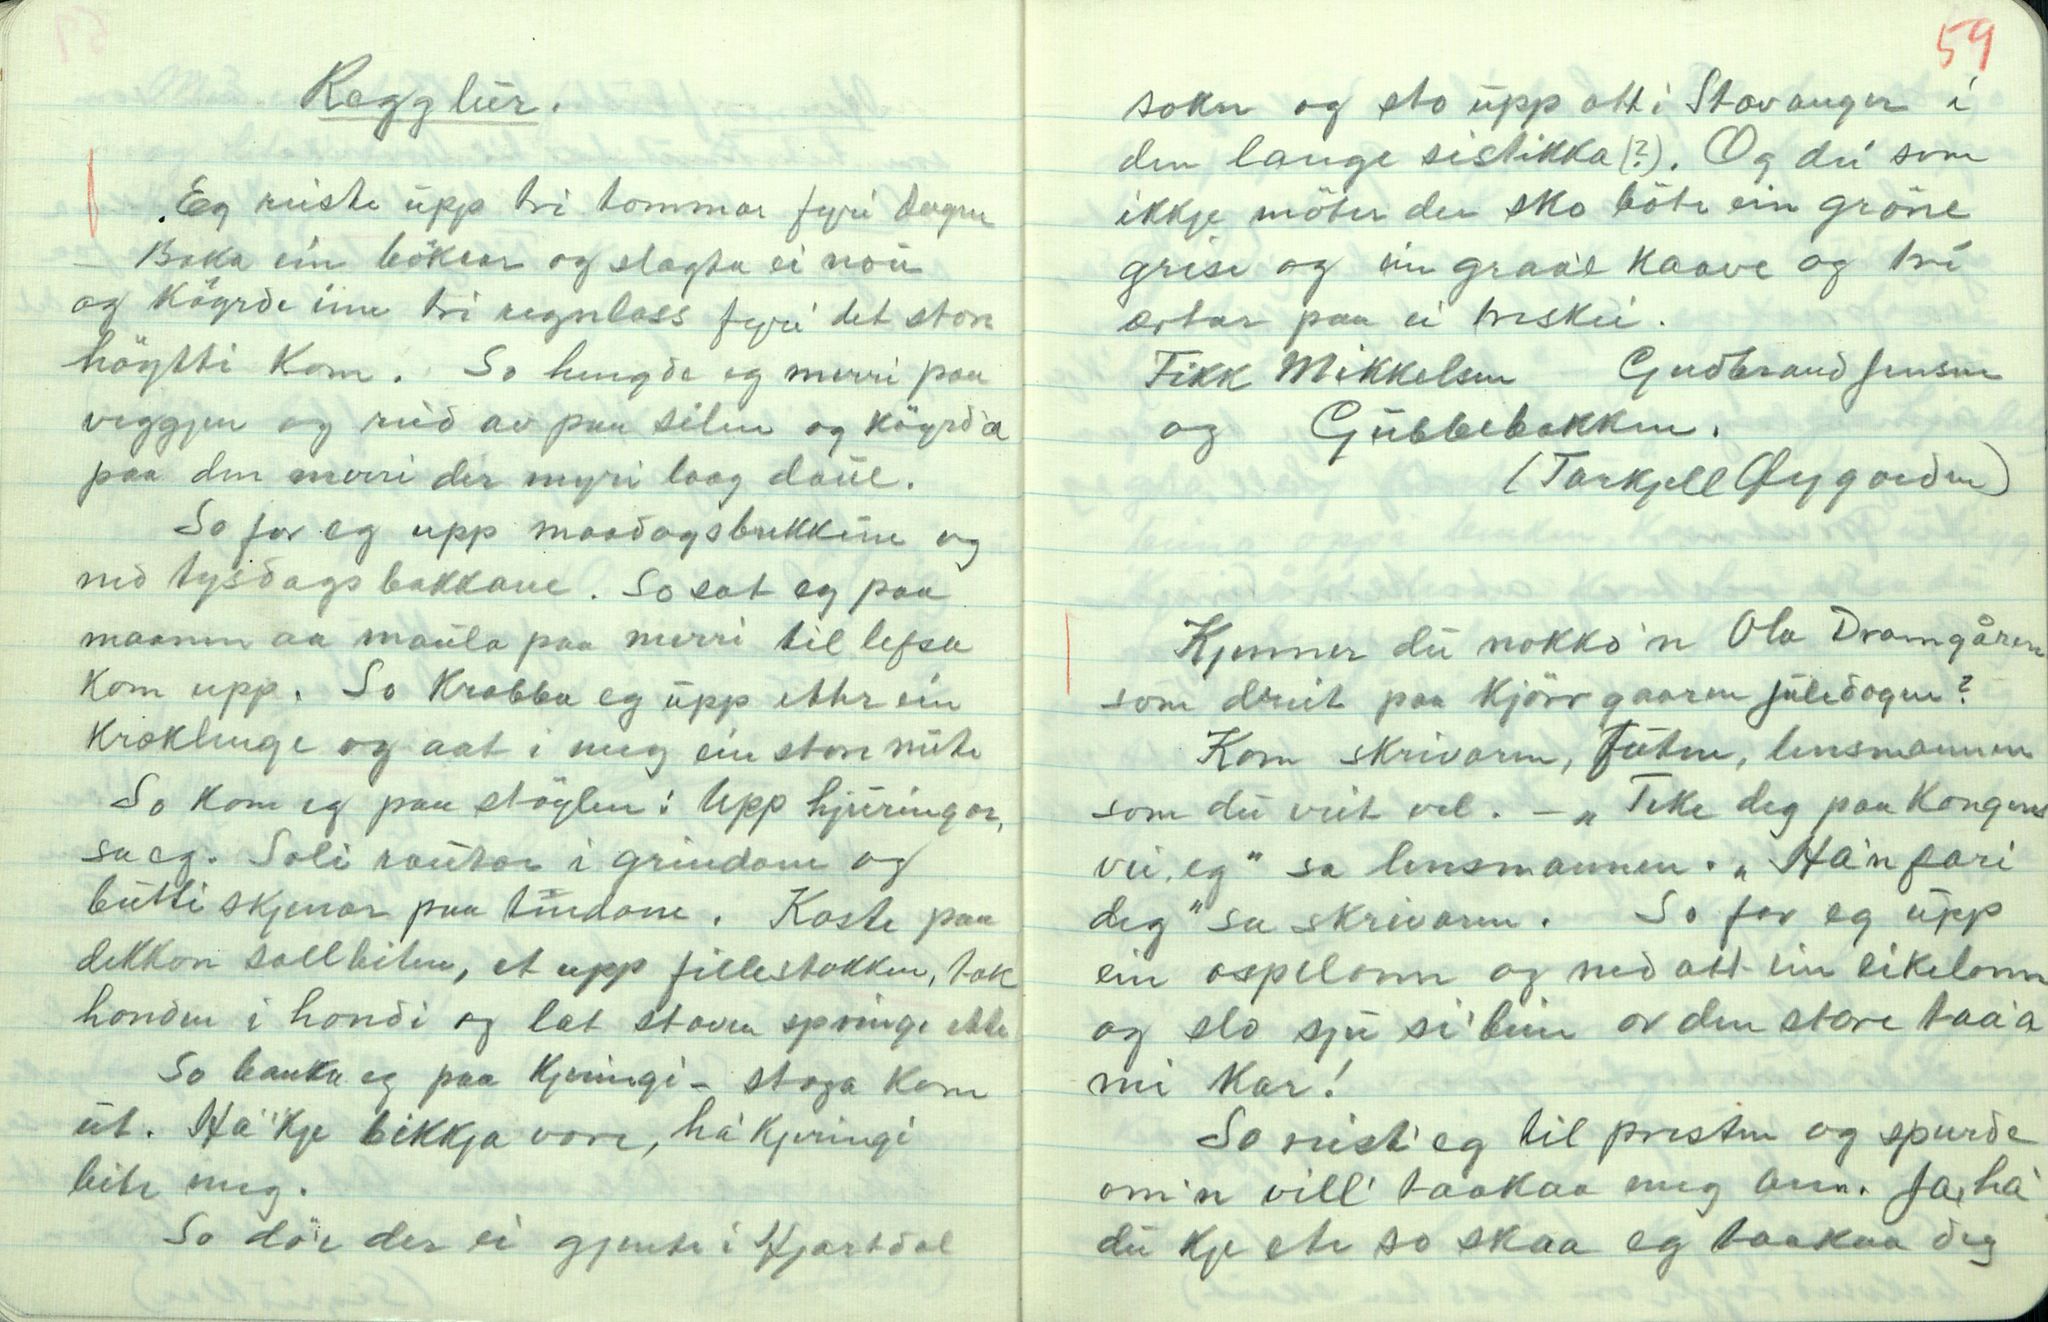 Regglür.
Eg reiste üpp tri tommar fyri dagen
Baka ein böksar og slagta ei nöü
og köyrde inn tri regnlass fyri det store
höytti kom. So hengde eg merri paa
veggjen og reid av paa selen og köyrde
paa den merri der myri laag daüe.
So for eg upp maadagsbrekküne og
ned tysdagsbakkane. So sat eg paa
maanen aa maüla paa merri til lefsa
kom upp. So krabba eg üpp etter ein
kraklunge og aat i meg ein store nüte
So kom eg paa stöylen: Upp hjüringar,
sa eg. Soli raütar i grindane og
bütti skjenar paa tindane. Kaste paa
dekkon sallbiten, et upp fillestakken, tak
honden i hondi og lat staven springe ette
So banka eg paa kjeringi – stoga kom
üt. Ha' kje bikkja vore, ha' kjeringi
bite meg.
So döe der ei gjente i Hjartdal
59
sokn og sto üpp att i Stavanger i
den lange sistikka (?). Og dü som
ikkje möter der sko böte ein gröne
grise og ein graae kaave og tri
ertar paa ei treskei.
Fikk Mikkelsen Gudbrand Jensen
og Gübbebakken.
(Tarkjell Øygarden)
Kjenner dü nokko'n Ola Dramgåren
som dreit paa Kjörrgaaren jüledagen?
Kom skrivaren, füten, lensmannen
som dü veit vel. – „Teke deg paa Kongens
vei, eg" sa lensmannen. „Ha'n fari
deg" sa skrivaren. So for eg üpp
ein ospelonn og ned att ein eikelonn
og slo sjü si'bein av den store taa'a
mi kar!
So reist' eg til presten og spurde
om'n vill' taakaa meg ann. Ja, ha'
dü kje ete so skaa eg taakaa deg